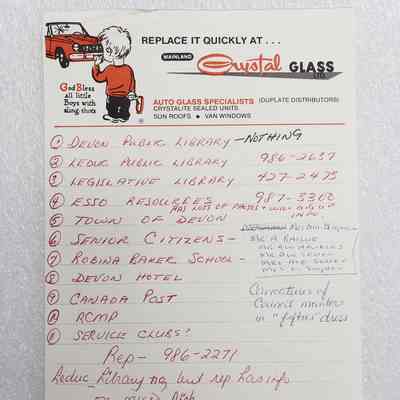 REPLACE IT QUICKLY AT . . .
MAINLAND Crystal GLASS LTD.
God Bless
all little
Boys with
sling shots
AUTO GLASS SPECIALISTS (DUPLATE DISTRIBUTORS)
CRYSTALITE SEALED UNITS
SUN ROOFS • VAN WINDOWS
1 DEVON PUBLIC LIBRARY - NOTHING
2 LEDUC PUBLIC LIBRARY 986-2637
3 LEGISLATIVE LIBRARY 427-2473
4 ESSO RESOURCES 987-3300
HAS LOTS OF
INFO.
5 TOWN OF DEVON
6 SENIOR CITIZENS -
7 ROBINA BAKER SCHOOL -
8 DEVON HOTEL
9 CANADA POST
10 RCMP
11 SERVICE CLUBS?
Caricatures of
Council members
in "fighter" dress
Rep - 986-2271
Leduc Library no, but rep. has info